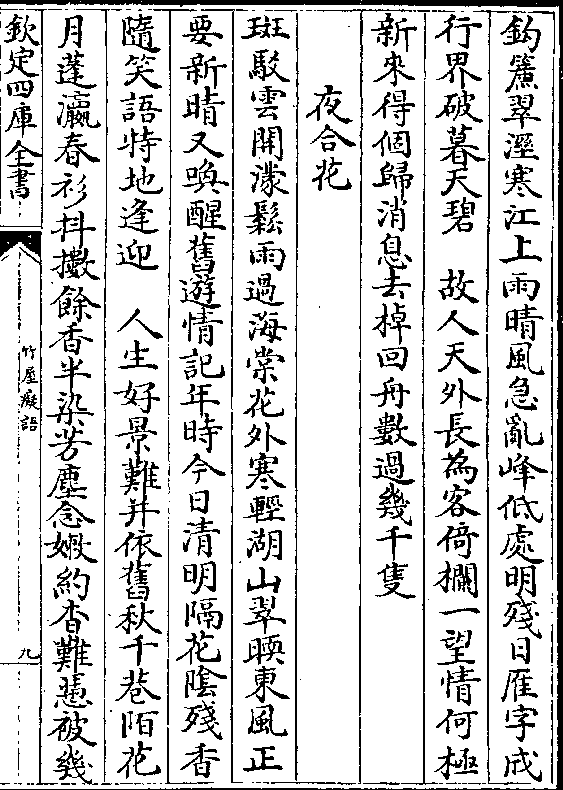 鈎簾翠溼寒江上雨晴風急亂峰低處明殘日雁字成
行界破暮天碧　故人天外長為客倚欄一望情何極
新來得個歸消息去棹回舟數過幾千隻
夜合花
斑駁雲開濛鬆雨過海棠花外寒輕湖山翠暖東風正
要新晴又喚醒舊遊情記年時今日清明隔花陰殘香
隨笑語特地逢迎　人生好景難并依舊秋千巷陌花
月蓬瀛春衫抖擻餘香半染芳塵念嫩約杳難慿被幾
欽定四庫全書
竹屋癡語
九